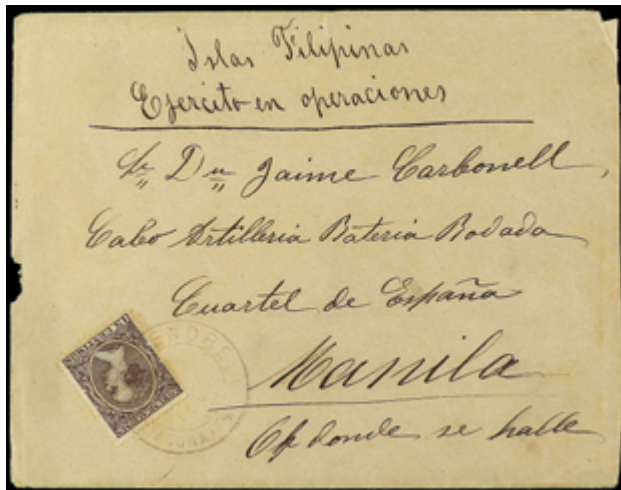 Islas Filipinas
Ejercito en operaciones
Sr Dn Jaime Carbonell,
Cabo Artilleria Bateria Rodada
Cuartel de España
Manila
donde se halle